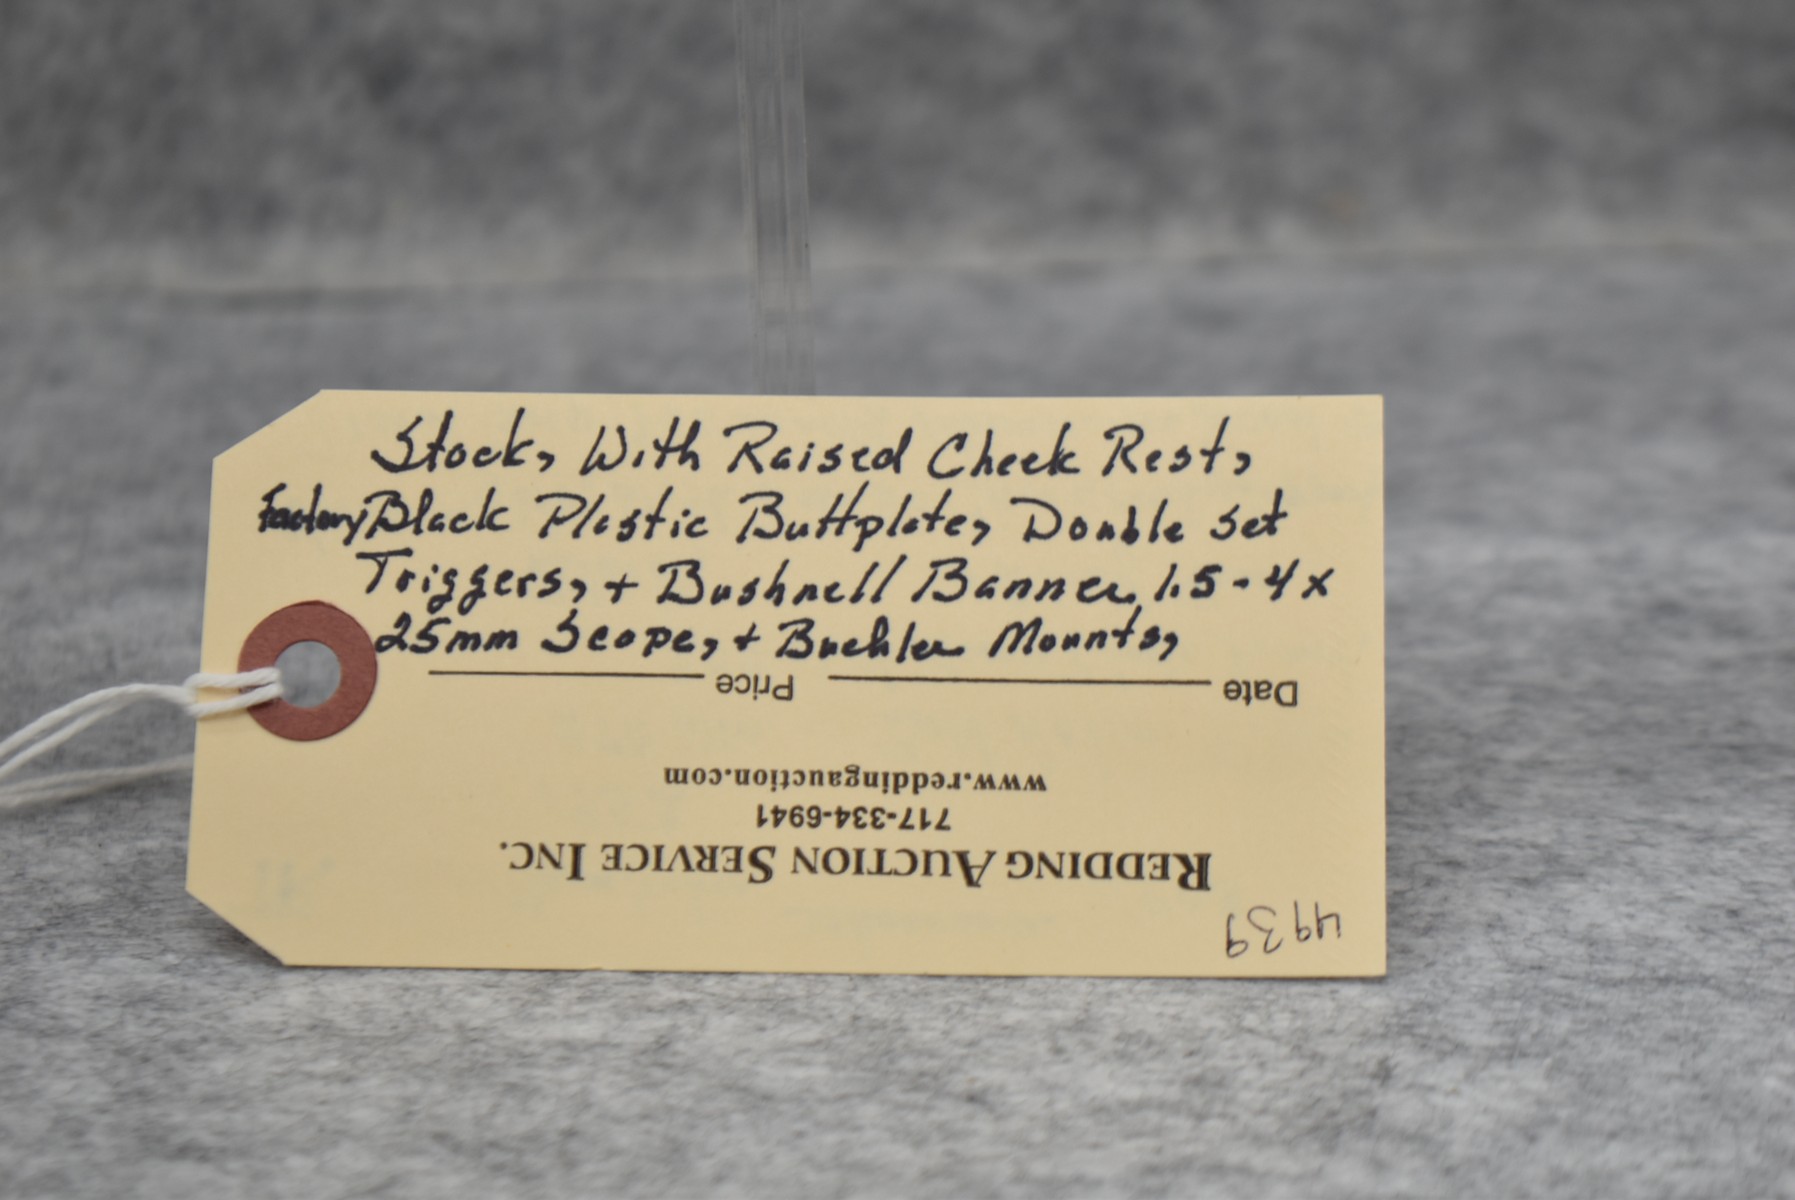 Stock, With Raised Cheek Rest,
Factory Black Plastic Buttplate, Double Set
Triggers, + Bushnell Banner 1.5-4x
25mm Scope, + Buehler Mounts,
4939
REDDING AUCTION SERVICE INC.
717-334-6941
www.reddingauction.com
Date Price